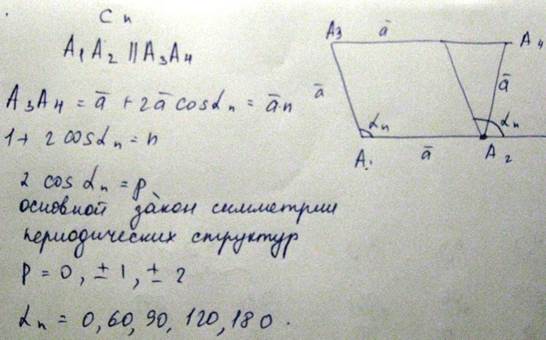 Cn
A₁A₂ || A₃A₄
A₃A₄ = ā + 2ā cosαn = ān
1 + 2 cosαn = n
2 cos αn = p
основной закон симметрии
периодических структур
P = 0, ± 1, ± 2
αn = 0, 60, 90, 120, 180.
A₃ ā A₄
ā ā
αn αn
A₁ ā A₂